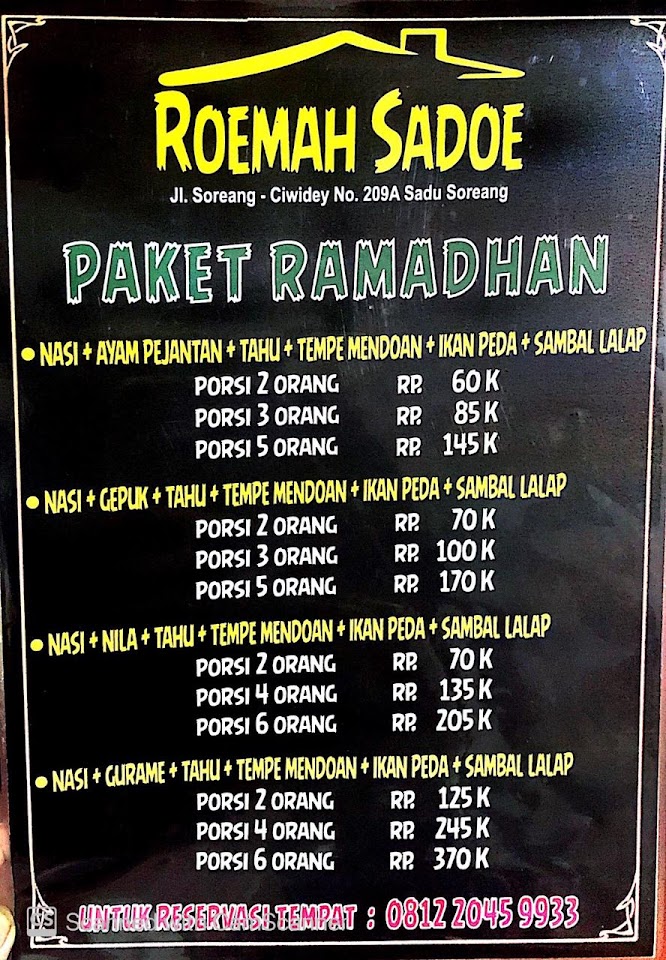 ROEMAH SADOE
Jl. Soreang - Ciwidey No. 209A Sadu Soreang
PAKET RAMADHAN
• NASI + AYAM PEJANTAN + TAHU + TEMPE MENDOAN + IKAN PEDA + SAMBAL LALAP
PORSI 2 ORANG RP. 60 K
PORSI 3 ORANG RP. 85 K
PORSI 5 ORANG RP. 145 K
• NASI + GEPUK + TAHU + TEMPE MENDOAN + IKAN PEDA + SAMBAL LALAP
PORSI 2 ORANG RP. 70 K
PORSI 3 ORANG RP. 100 K
PORSI 5 ORANG RP. 170 K
• NASI + NILA + TAHU + TEMPE MENDOAN + IKAN PEDA + SAMBAL LALAP
PORSI 2 ORANG RP. 70 K
PORSI 4 ORANG RP. 135 K
PORSI 6 ORANG RP. 205 K
• NASI + GURAME + TAHU + TEMPE MENDOAN + IKAN PEDA + SAMBAL LALAP
PORSI 2 ORANG RP. 125 K
PORSI 4 ORANG RP. 245 K
PORSI 6 ORANG RP. 370 K
UNTUK RESERVASI TEMPAT : 0812 2045 9933
CS